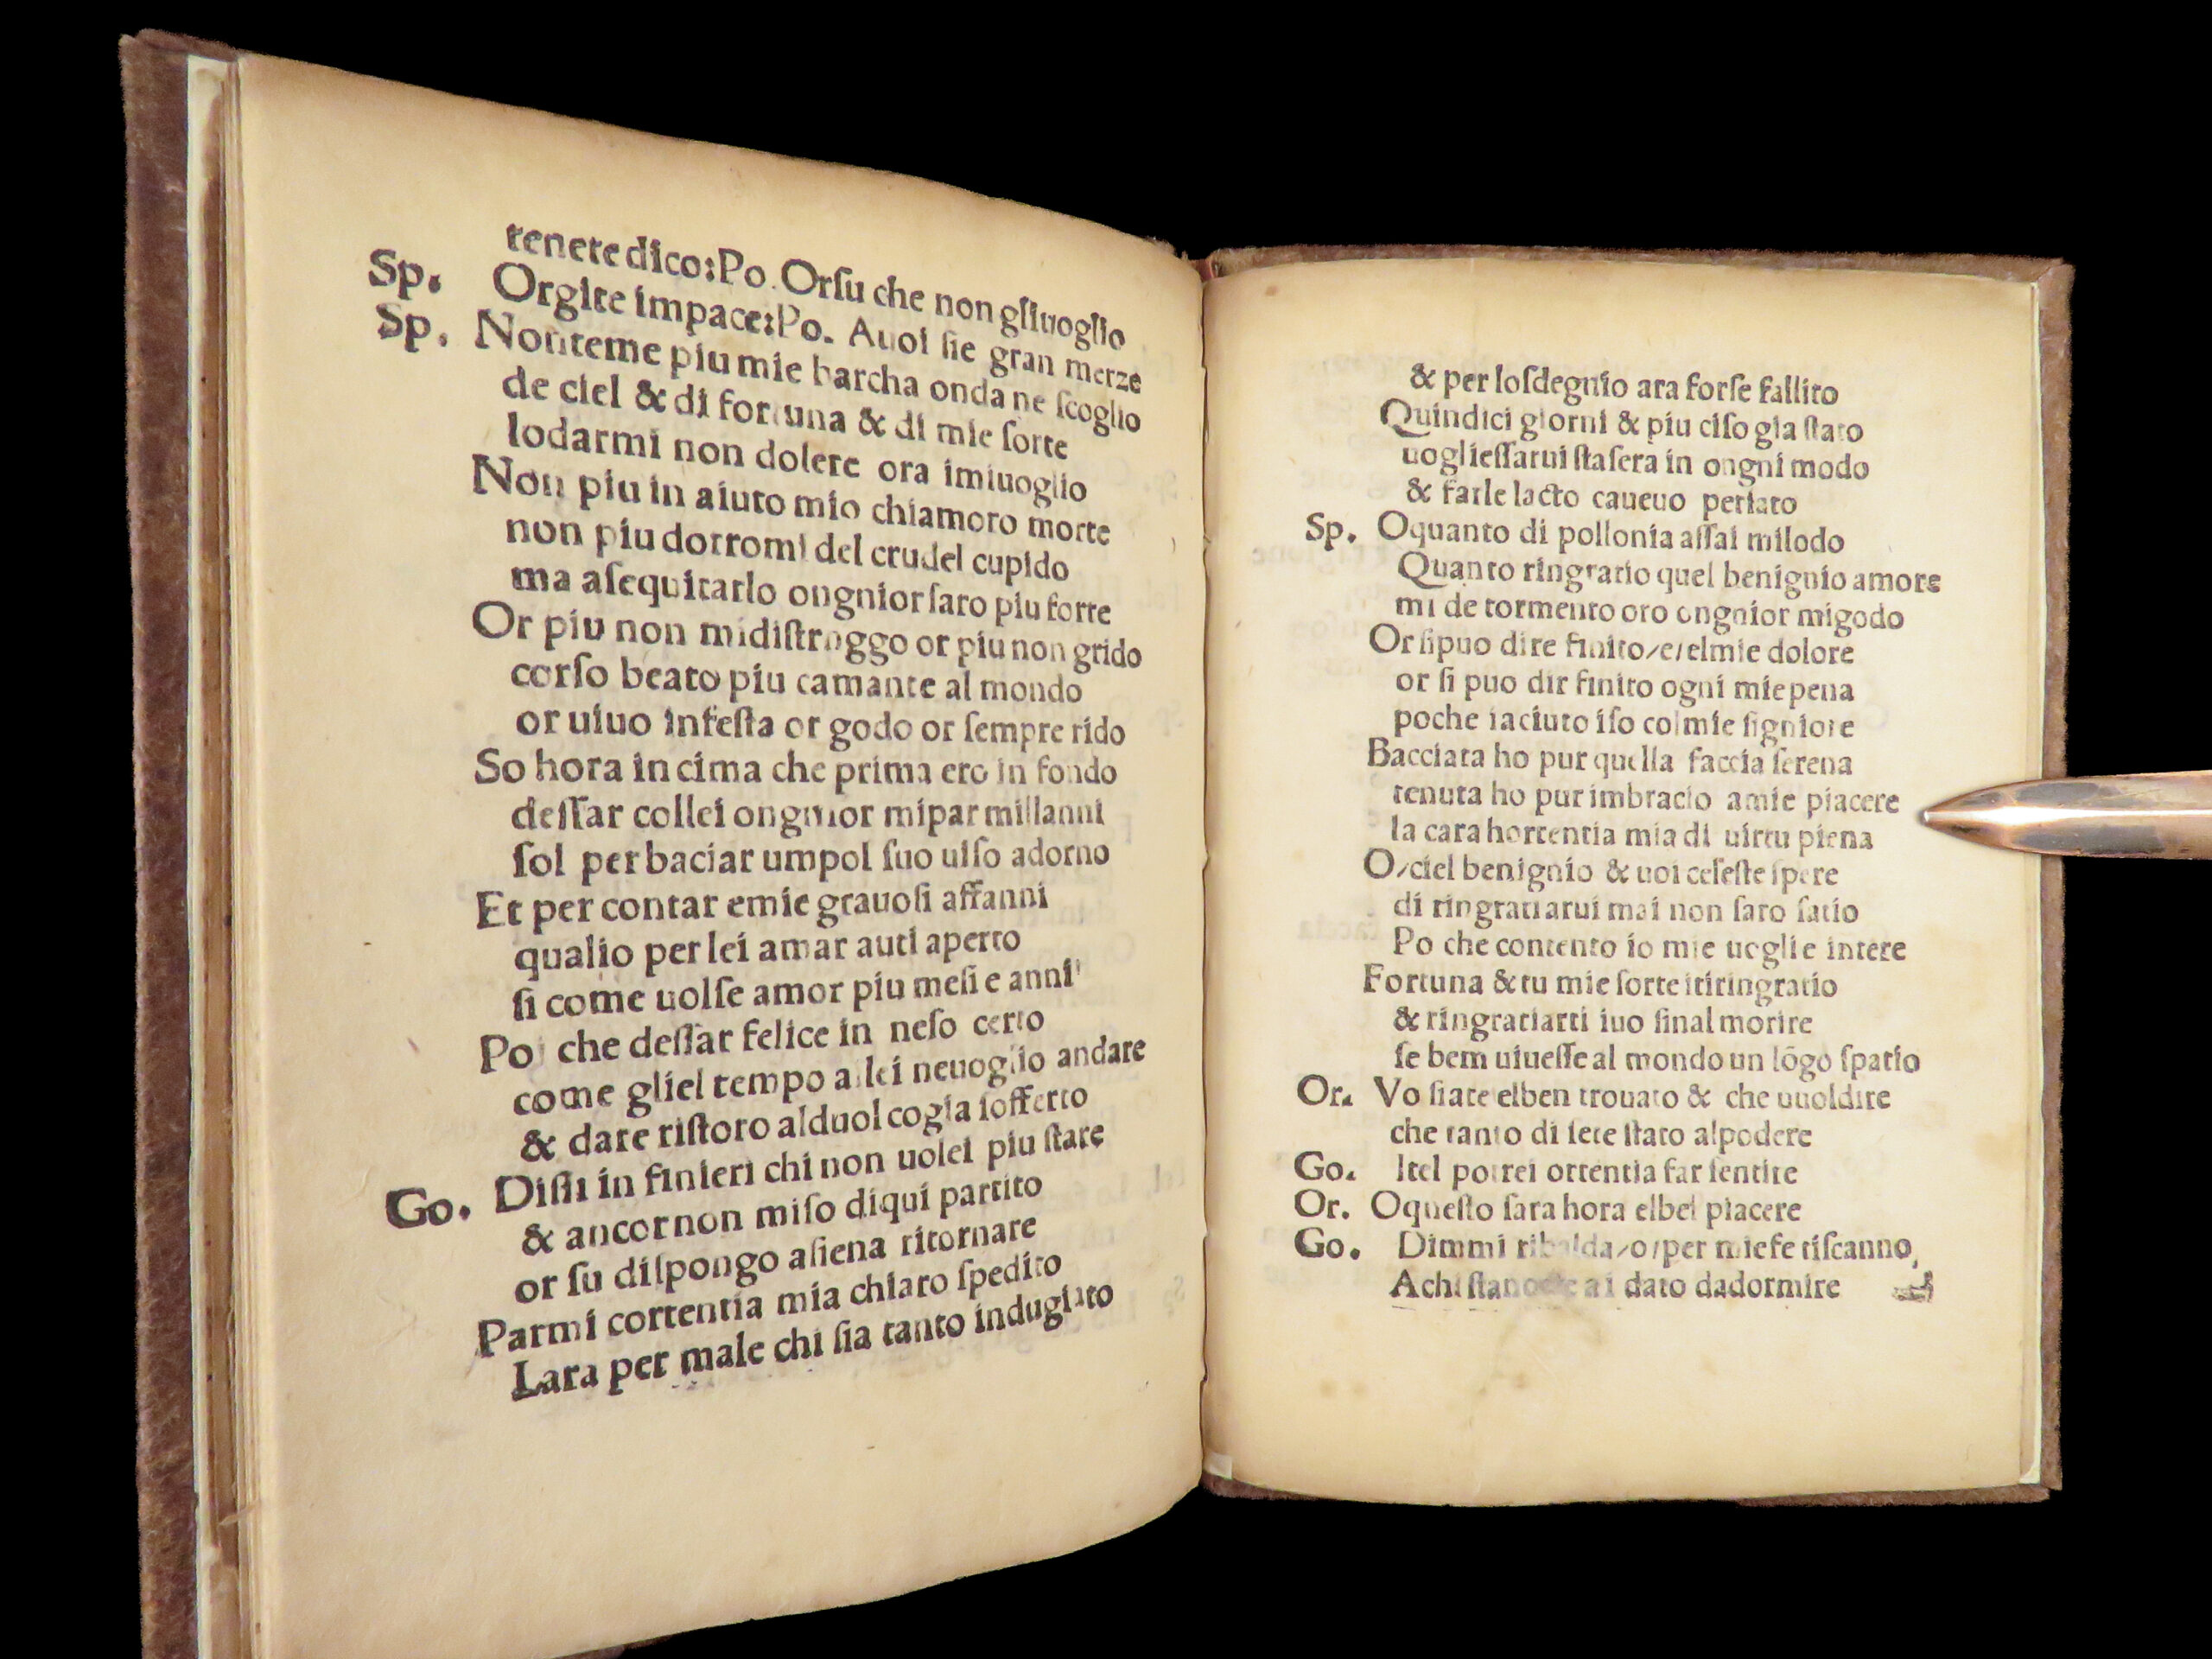 tenete dico:Po. Orſu che non gliuoglio
Sp. Orgite impace:Po. Auoi ſie gran merze
Sp. Nonteme piu mie barcha onda ne ſcoglio
de ciel & di fortuna & di mie ſorte
lodarmi non dolere ora imiuoglio
Non piu in aiuto mio chiamoro morte
non piu dorromi del crudel cupido
ma aſequitarlo ongnior ſaro piu forte
Or piu non midiſtruggo or piu non grido
corſo beato piu camante al mondo
or uiuo infeſta or godo or ſempre rido
So hora in cima che prima ero in fondo
deſſar collei ongnior mipar millanni
ſol per baciar umpol ſuo uiſo adorno
Et per contar emie grauoſi affanni
qualio per lei amar auti aperto
ſi come uolſe amor piu meſi e anni
Poi che deſſar felice in neſo certo
come gliel tempo allei neuoglio andare
& dare riſtoro alduol cogia ſofferto
Go. Diſſi in finieri chi non uolei piu ſtare
& ancor non miſo diqui partito
or ſu diſpongo aſiena ritornare
Parmi cortentia mia chiaro ſpedito
Lara per male chi ſia tanto indugiato
& per loſdegnio ara forſe fallito
Quindici giorni & piu ciſo gia ſtato
uoglieſſarui ſtaſera in ongni modo
& farle lacto caueuo perlato
Sp. Oquanto di pollonia aſſai milodo
Quanto ringratio quel benignio amore
mi de tormento oro ongnior migodo
Or ſipuo dire finito/e/elmie dolore
or ſi puo dir finito ogni mie pena
poche iaciuto iſo colmie ſigniore
Bacciata ho pur quella faccia ſerena
tenuta ho pur imbracio amie piacere
la cara hortentia mia di uirtu piena
O/ciel benignio & uoi celeſte ſpere
di ringratiarui mai non ſaro ſatio
Po che contento io mie uoglie intere
Fortuna & tu mie ſorte itiringratio
& ringratiarti iuo final morire
ſe bem uiueſſe al mondo un lōgo ſpatio
Or. Vo ſiate elben trouato & che uuoldire
che tanto di ſete ſtato alpodere
Go. Itel potrei ortentia far ſentire
Or. Oqueſto ſara hora elbel piacere
Go. Dimmi ribalda/o/per miefe tiſcanno,
Achi ſtanocte ai dato dadormire